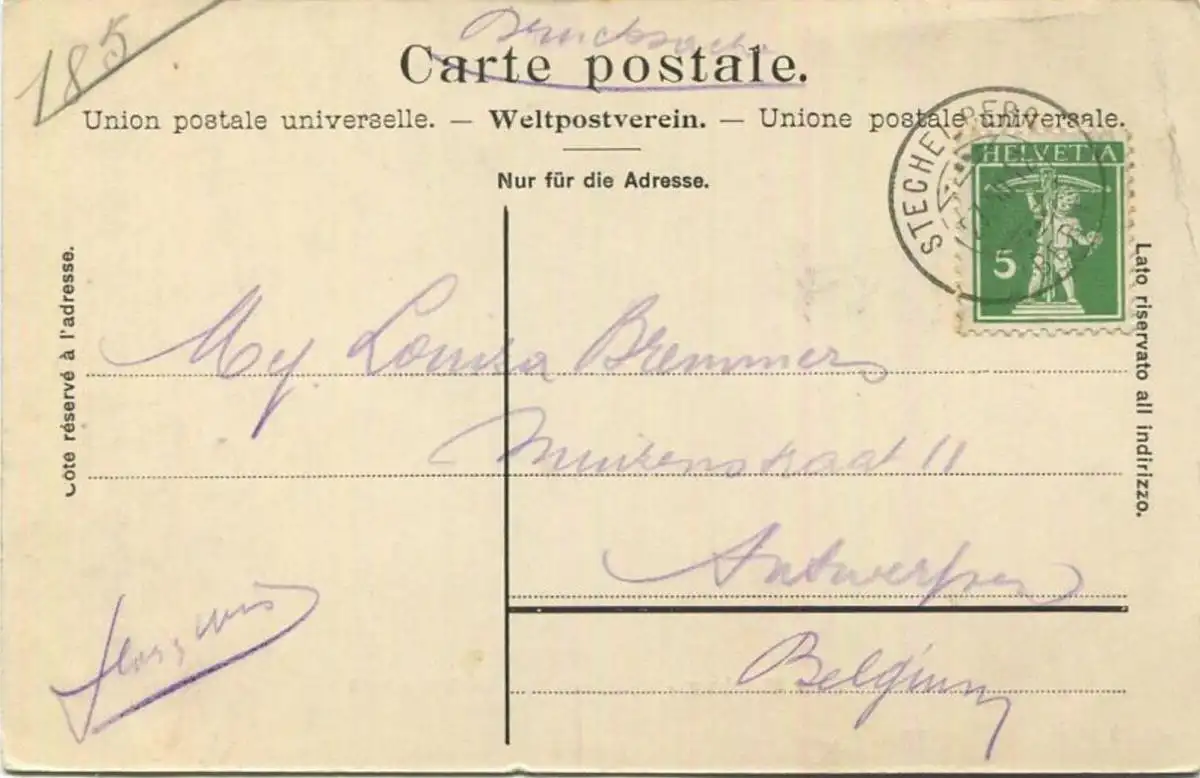 185
Drucksache
Carte postale.
Union postale universelle. — Weltpostverein. — Unione postale universale.
Nur für die Adresse.
STECHELBERG
HELVETIA
5
Côté réservé à l'adresse.
Lato riservato all indirizzo.
Mej. Louisa Bremmers
11
Antwerpen
Belgium